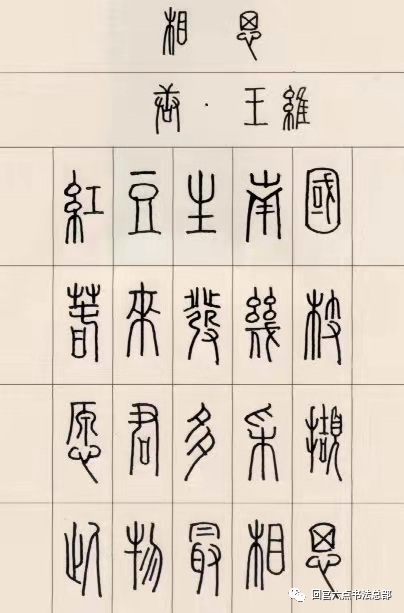 相思
唐·王維
紅豆生南國
春來發幾枝
愿君多采擷
此物最相思
回宫六点书法总部